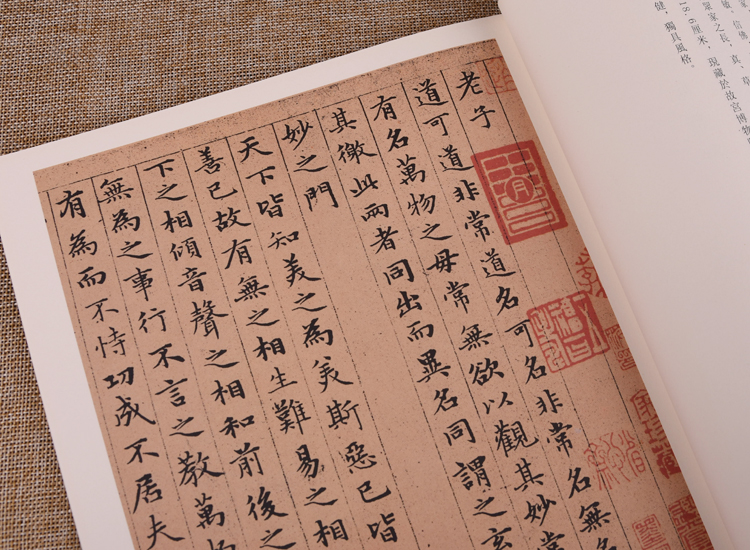 眾家之長，真、草
18.6厘米，現藏於故宮博物
健，獨具風格。
老子
道可道非常道名可名非常名無
有名萬物之母常無欲以觀其妙常
其徼此兩者同出而異名同謂之玄
妙之門
天下皆知美之為美斯惡已皆
善已故有無之相生難易之相
下之相傾音聲之相和前後之
無為之事行不言之教萬
有為而不恃功成不居夫